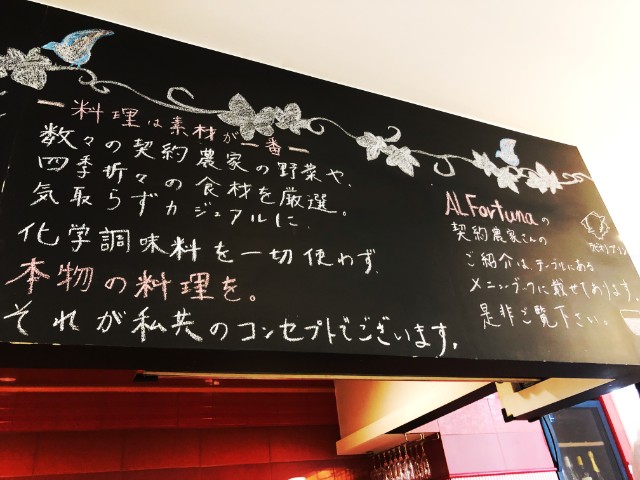 ー料理は素材が一番ー
数々の契約農家の野菜や、
四季折々の食材を厳選。
気取らずカジュアルに、
化学調味料を一切使わず、
本物の料理を。
それが私共のコンセプトでございます。
ALFortunaの
契約農家さんの
ご紹介は、テーブルにある
メニューブックに載せております。
是非ご覧下さい。